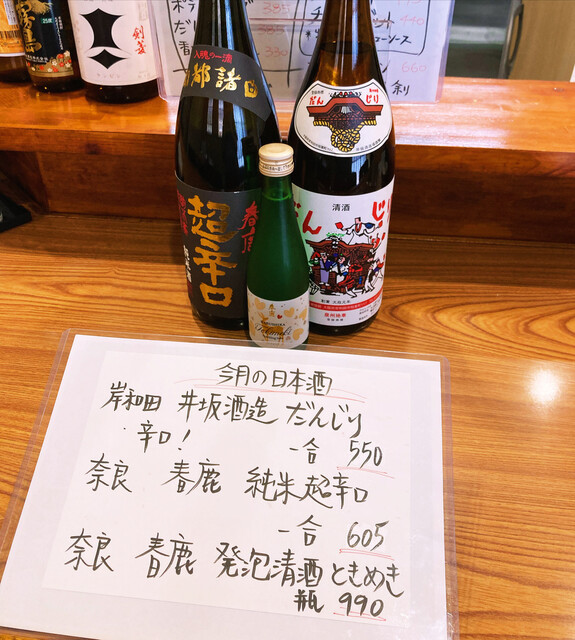 剣菱
335
440
ソース
660
都諸白
超辛口
春鹿
だんじり
清酒
だんじり
今月の日本酒
岸和田 井坂酒造 だんじり
辛口! 一合 550
奈良 春鹿 純米超辛口
一合 605
奈良 春鹿 発泡清酒 ときめき
瓶 990